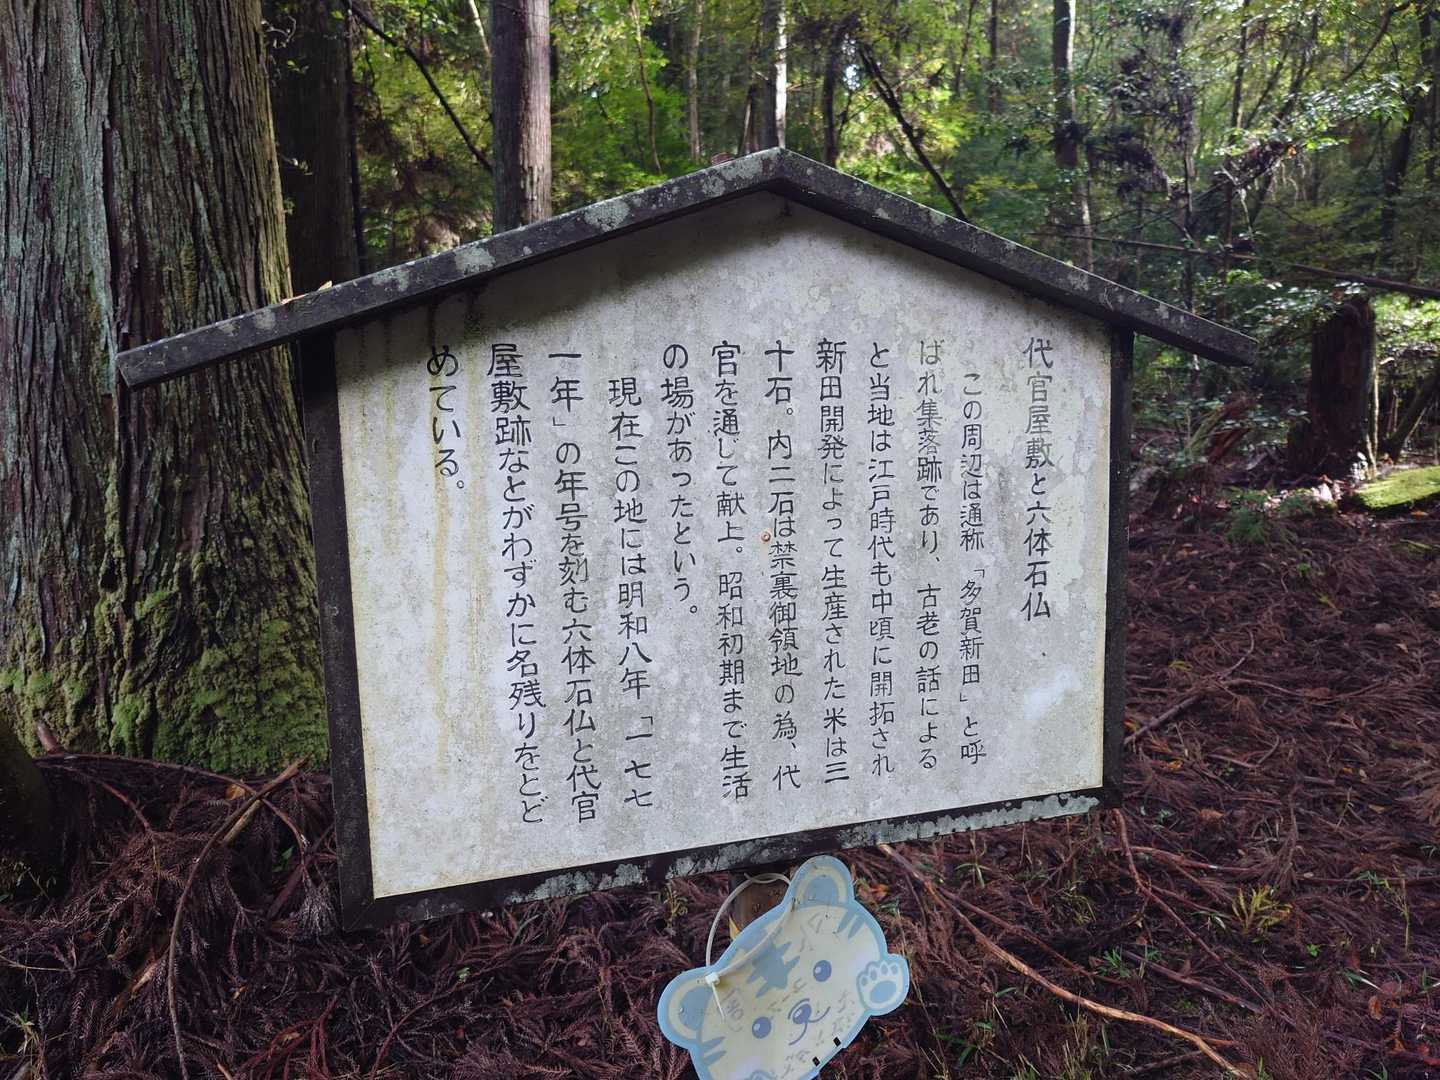 代官屋敷と六体石仏
この周辺は通称「多賀新田」と呼
ばれ集落跡であり、古老の話による
と当地は江戸時代も中頃に開拓され
新田開発によって生産された米は三
十石。内二石は禁裏御領地の為、代
官を通じて献上。昭和初期まで生活
の場があったという。
現在この地には明和八年「一七七
一年」の年号を刻む六体石仏と代官
屋敷跡などがわずかに名残りをとど
めている。